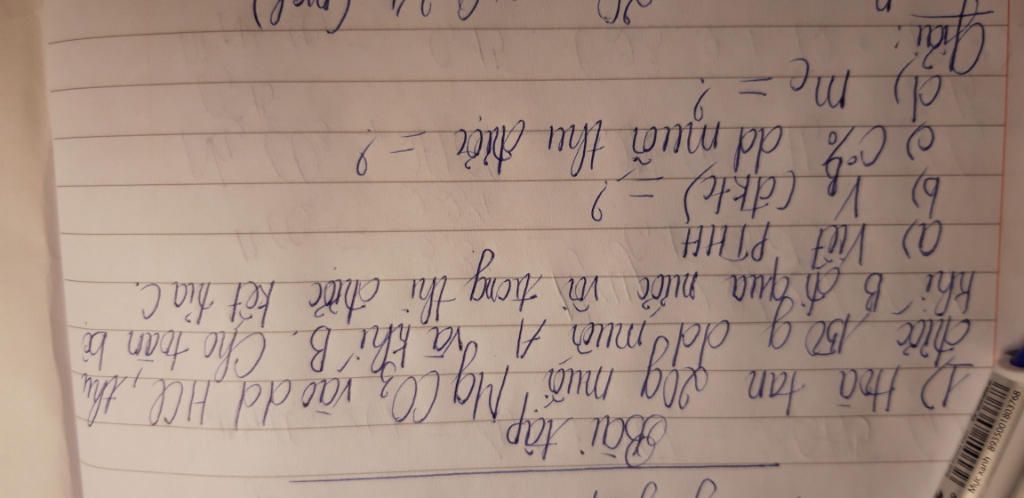 Bài tập
1) Hoà tan 20g muối MgCO3 vào dd HCl, thu
được 150 g dd muối A và khí B. Cho toàn bộ
khí B đi qua nước vôi trong thì được kết tủa C.
a) Viết PTHH
b) VB (đktc) = ?
c) C% dd muối thu được = ?
d) mC = ?
Giải:
Mực xanh 8935001803768